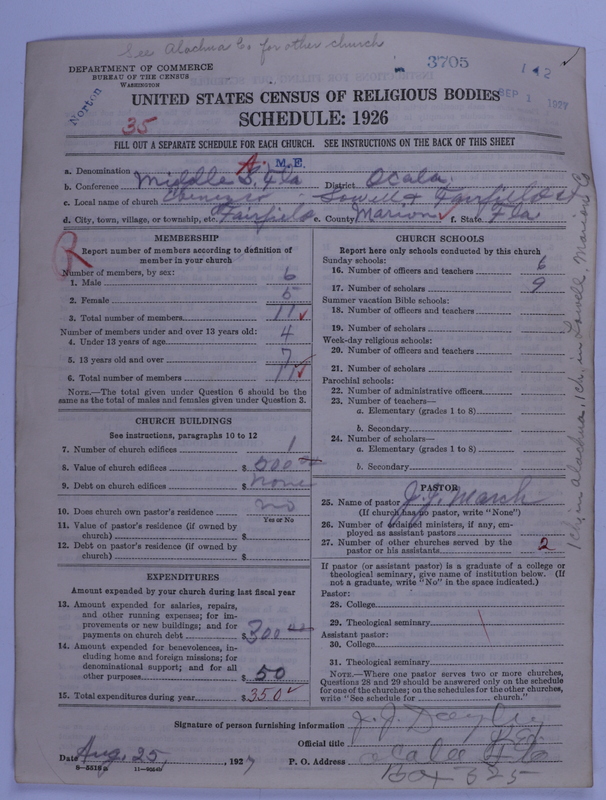 See Alachua Co for other church
DEPARTMENT OF COMMERCE
BUREAU OF THE CENSUS
WASHINGTON
3705
1 42
SEP 1 1927
Norton
UNITED STATES CENSUS OF RELIGIOUS BODIES
SCHEDULE: 1926
35
FILL OUT A SEPARATE SCHEDULE FOR EACH CHURCH. SEE INSTRUCTIONS ON THE BACK OF THIS SHEET
a. Denomination A. M.E.
b. Conference Middle S. Fla District Ocala
c. Local name of church Ebenezer Lowell & Fairfield
d. City, town, village, or township, etc. Fairfield e. County Marion f. State Fla
MEMBERSHIP
Report number of members according to definition of
member in your church
Number of members, by sex:
1. Male 6
2. Female 5
3. Total number of members 11
Number of members under and over 13 years old:
4. Under 13 years of age 4
5. 13 years old and over 7
6. Total number of members 11
NOTE.—The total given under Question 6 should be the
same as the total of males and females given under Question 3.
CHURCH BUILDINGS
See instructions, paragraphs 10 to 12
7. Number of church edifices 1
8. Value of church edifices $ 500 00
9. Debt on church edifices $ none
10. Does church own pastor's residence no
Yes or No
11. Value of pastor's residence (if owned by
church) $
12. Debt on pastor's residence (if owned by
church) $
EXPENDITURES
Amount expended by your church during last fiscal year
13. Amount expended for salaries, repairs,
and other running expenses; for im-
provements or new buildings; and for
payments on church debt $ 300 00
14. Amount expended for benevolences, in-
cluding home and foreign missions; for
denominational support; and for all
other purposes $ 50
15. Total expenditures during year $ 350
CHURCH SCHOOLS
Report here only schools conducted by this church
Sunday schools:
16. Number of officers and teachers 6
17. Number of scholars 9
Summer vacation Bible schools:
18. Number of officers and teachers
19. Number of scholars
Week-day religious schools:
20. Number of officers and teachers
21. Number of scholars
Parochial schools:
22. Number of administrative officers
23. Number of teachers—
a. Elementary (grades 1 to 8)
b. Secondary
24. Number of scholars—
a. Elementary (grades 1 to 8)
b. Secondary
PASTOR
25. Name of pastor J. J. March
(If church has no pastor, write "None")
26. Number of ordained ministers, if any, em-
ployed as assistant pastors
27. Number of other churches served by the
pastor or his assistants 2
If pastor (or assistant pastor) is a graduate of a college or
theological seminary, give name of institution below. (If
not a graduate, write "No" in the space indicated.)
Pastor:
28. College
29. Theological seminary
Assistant pastor:
30. College
31. Theological seminary
NOTE.—Where one pastor serves two or more churches,
Questions 28 and 29 should be answered only on the schedule
for one of the churches; on the schedules for the other churches,
write "See schedule for church."
1 ch. in Alachua, 1 ch. in Lowell, Marion Co
Signature of person furnishing information
Official title
Date Aug. 25, 1927 P. O. Address Ocala Fla
8-5518 a Box 525